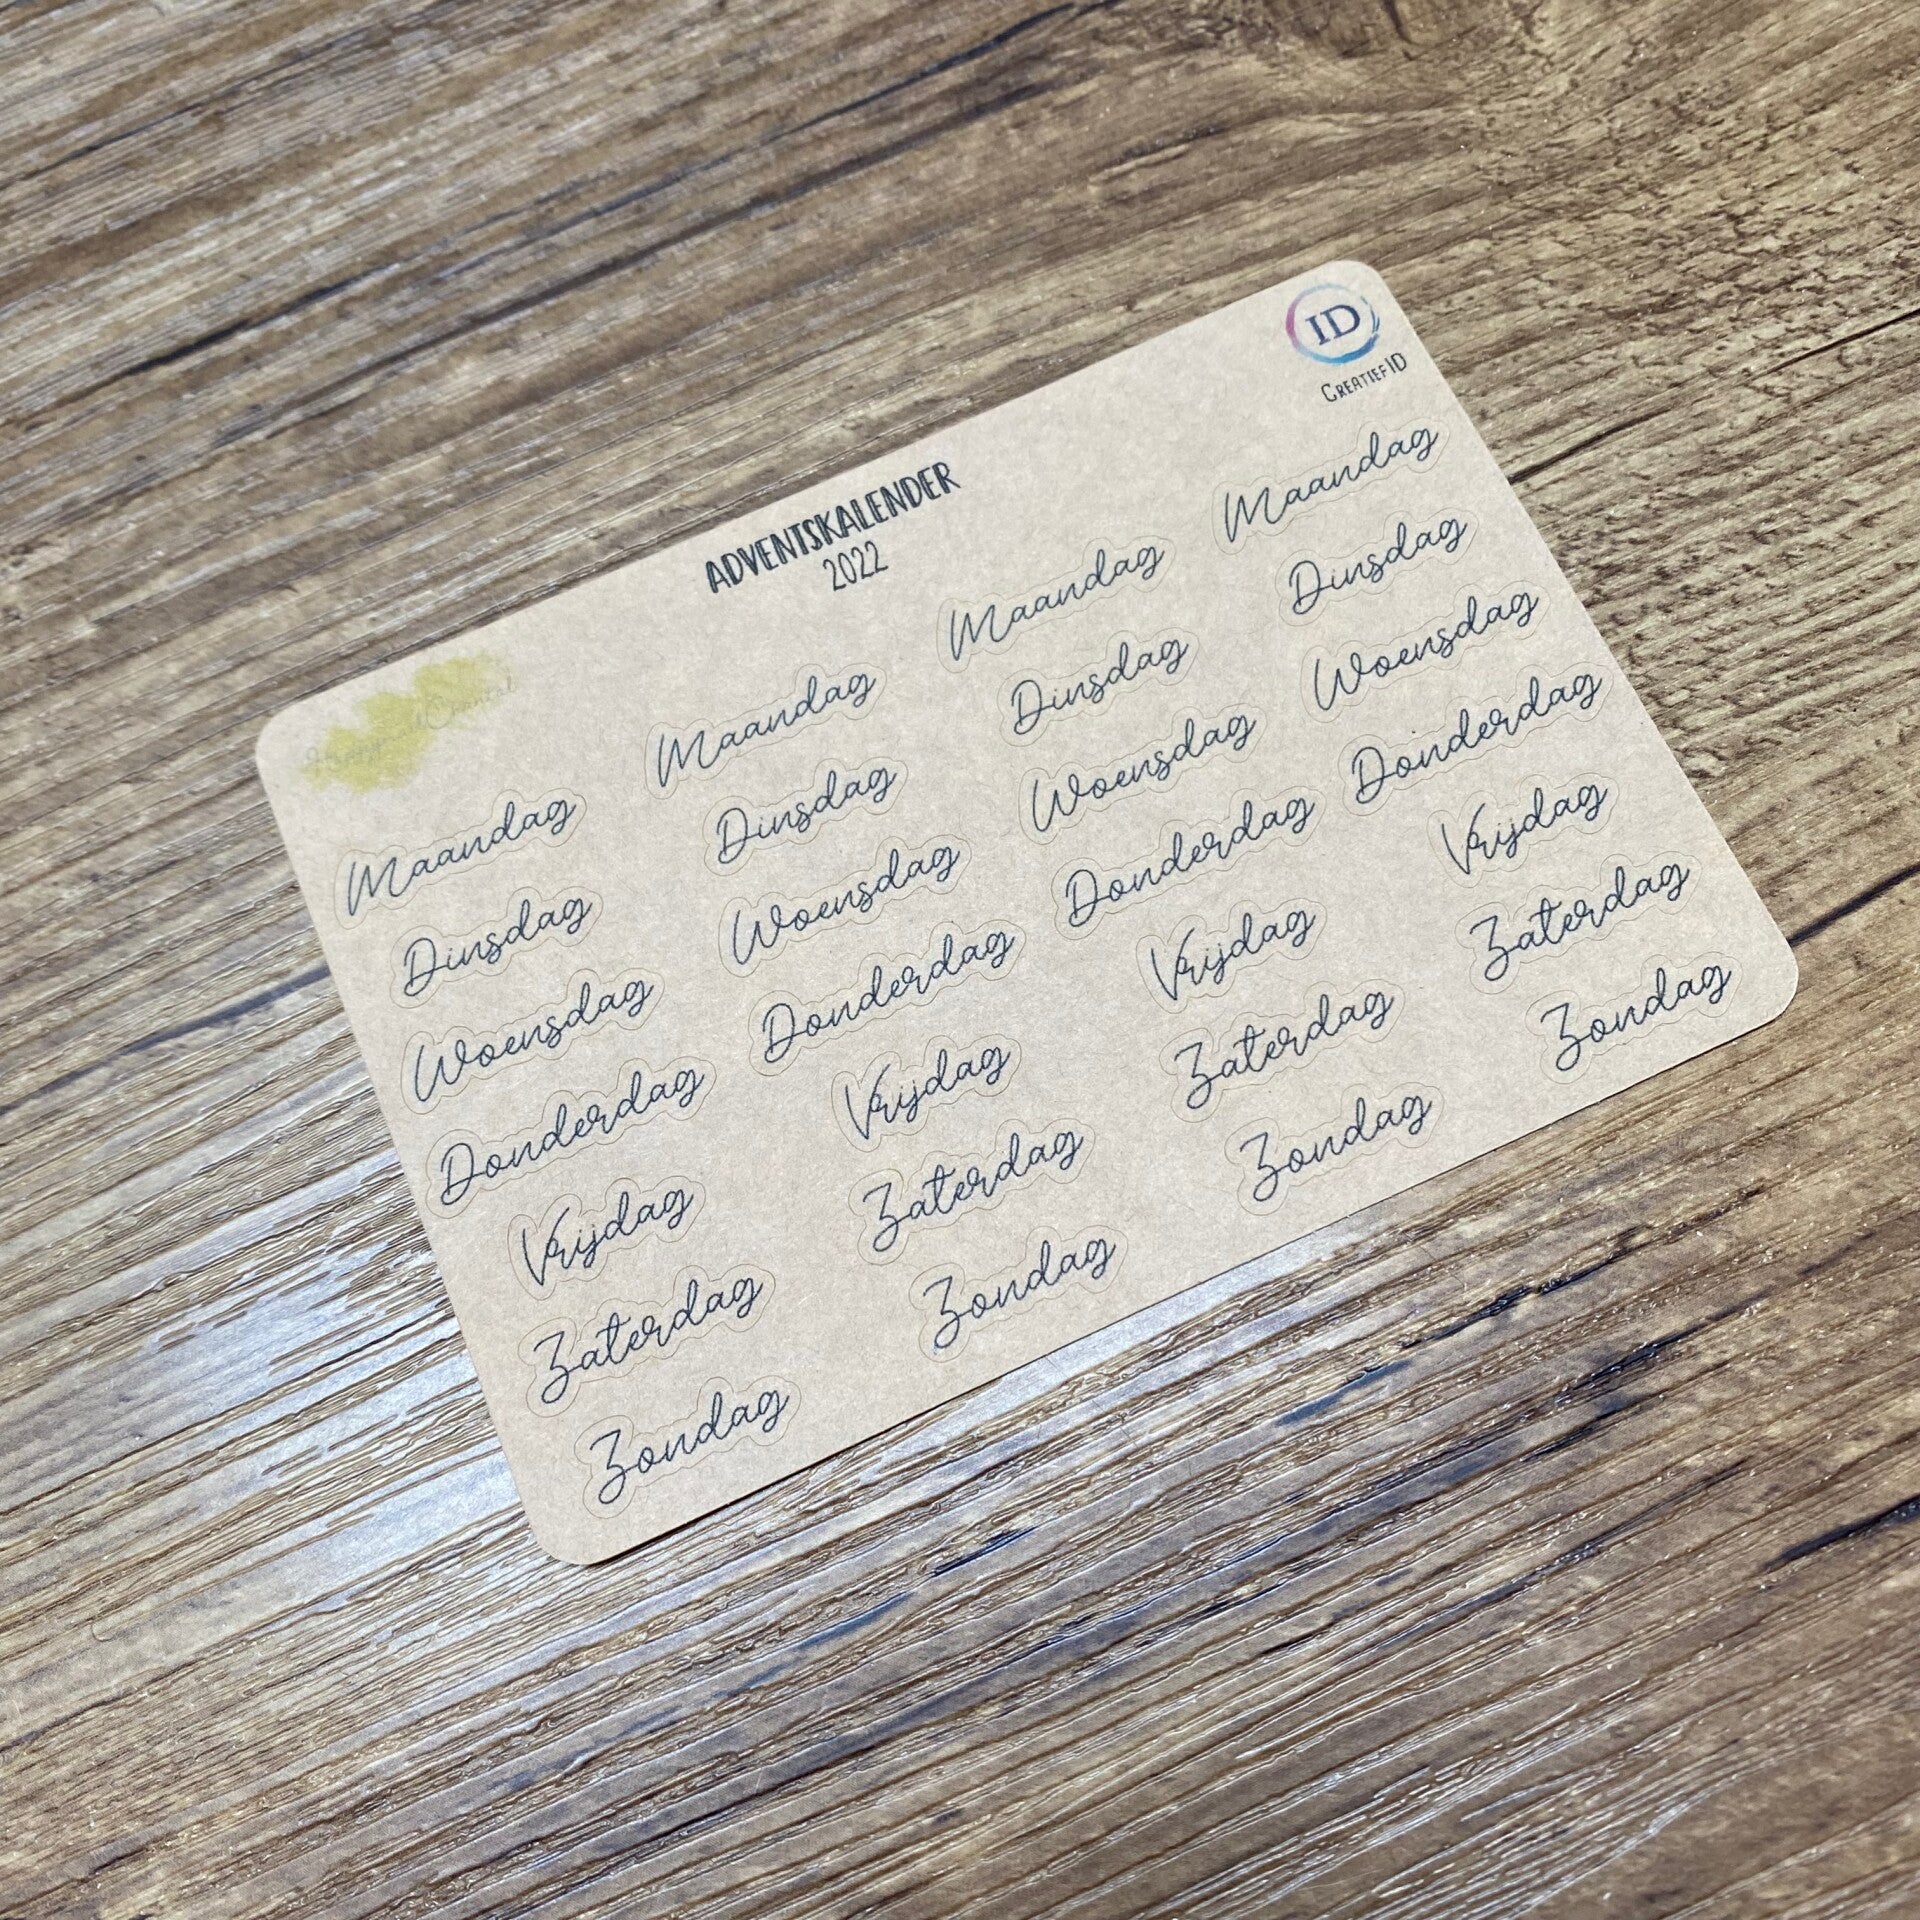 ADVENTSKALENDER
2022
ID
CREATIEFID
Maandag Maandag Maandag Maandag
Dinsdag Dinsdag Dinsdag Dinsdag
Woensdag Woensdag Woensdag Woensdag
Donderdag Donderdag Donderdag Donderdag
Vrijdag Vrijdag Vrijdag Vrijdag
Zaterdag Zaterdag Zaterdag Zaterdag
Zondag Zondag Zondag Zondag